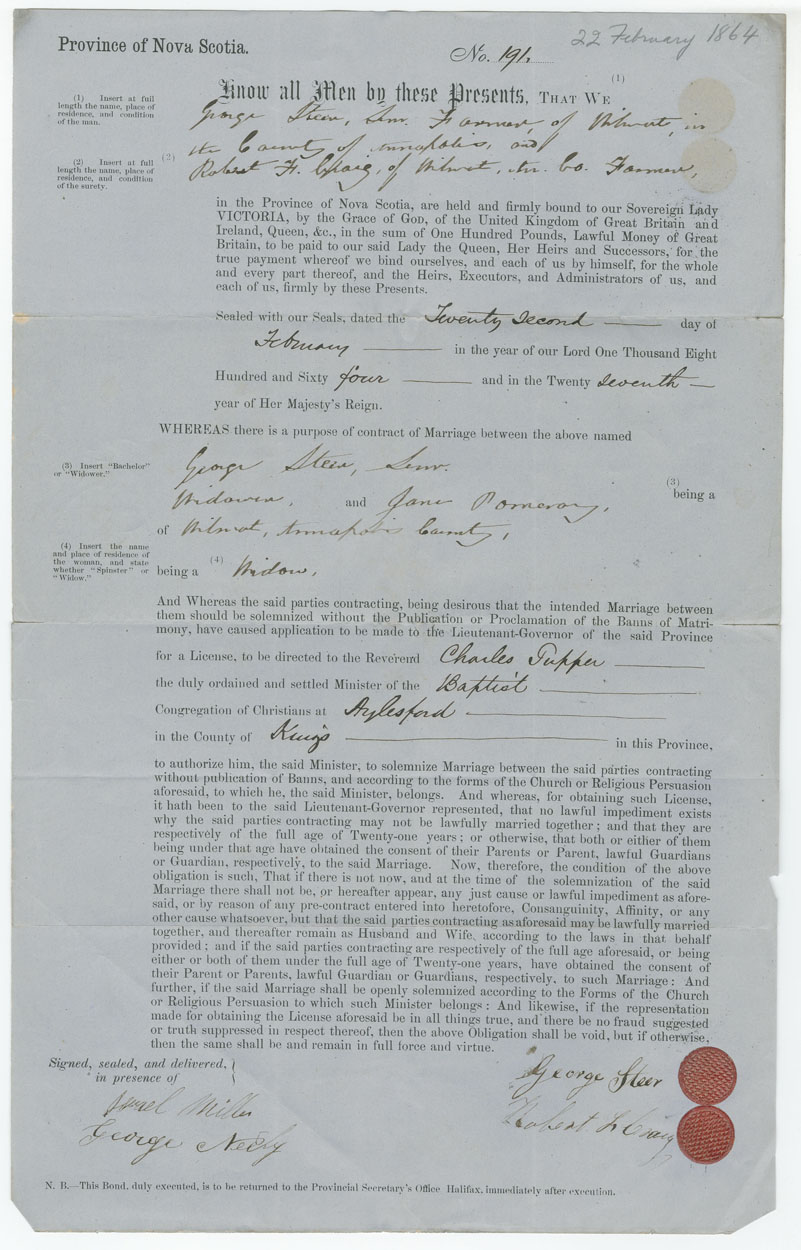 22 February 1864
Province of Nova Scotia.
No. 191.
Know all Men by these Presents, THAT WE (1)
George Steer, Senr. Farmer, of Wilmot, in
the County of Annapolis, and
(2) Robert H. Craig, of Wilmot, An. Co. Farmer,
(1) Insert at full
length the name, place of
residence, and condition
of the man.
(2) Insert at full
length the name, place of
residence, and condition
of the surety.
in the Province of Nova Scotia, are held and firmly bound to our Sovereign Lady
VICTORIA, by the Grace of God, of the United Kingdom of Great Britain and
Ireland, Queen, &c., in the sum of One Hundred Pounds, Lawful Money of Great
Britain, to be paid to our said Lady the Queen, Her Heirs and Successors, for the
true payment whereof we bind ourselves, and each of us by himself, for the whole
and every part thereof, and the Heirs, Executors, and Administrators of us, and
each of us, firmly by these Presents.
Sealed with our Seals, dated the Twenty Second day of
February in the year of our Lord One Thousand Eight
Hundred and Sixty four and in the Twenty seventh
year of Her Majesty's Reign.
WHEREAS there is a purpose of contract of Marriage between the above named
George Steer, Senr. (3) being a
(3) Insert "Bachelor"
or "Widower."
Widower, and Jane Pomeroy,
of Wilmot, Annapolis County,
(4) Insert the name
and place of residence of
the woman, and state
whether "Spinster" or
"Widow."
being a (4) Widow.
And Whereas the said parties contracting, being desirous that the intended Marriage between
them should be solemnized without the Publication or Proclamation of the Banns of Matri-
mony, have caused application to be made to the Lieutenant-Governor of the said Province
for a License, to be directed to the Reverend Charles Tupper
the duly ordained and settled Minister of the Baptist
Congregation of Christians at Aylesford
in the County of Kings in this Province,
to authorize him, the said Minister, to solemnize Marriage between the said parties contracting
without publication of Banns, and according to the forms of the Church or Religious Persuasion
aforesaid, to which he, the said Minister, belongs. And whereas, for obtaining such License,
it hath been to the said Lieutenant-Governor represented, that no lawful impediment exists
why the said parties contracting may not be lawfully married together; and that they are
respectively of the full age of Twenty-one years; or otherwise, that both or either of them
being under that age have obtained the consent of their Parents or Parent, lawful Guardians
or Guardian, respectively, to the said Marriage. Now, therefore, the condition of the above
obligation is such, That if there is not now, and at the time of the solemnization of the said
Marriage there shall not be, or hereafter appear, any just cause or lawful impediment as afore-
said, or by reason of any pre-contract entered into heretofore, Consanguinity, Affinity, or any
other cause whatsoever, but that the said parties contracting as aforesaid may be lawfully married
together, and thereafter remain as Husband and Wife, according to the laws in that behalf
provided; and if the said parties contracting are respectively of the full age aforesaid, or being
either or both of them under the full age of Twenty-one years, have obtained the consent of
their Parent or Parents, lawful Guardian or Guardians, respectively, to such Marriage: And
further, if the said Marriage shall be openly solemnized according to the Forms of the Church
or Religious Persuasion to which such Minister belongs: And likewise, if the representation
made for obtaining the License aforesaid be in all things true, and there be no fraud suggested
or truth suppressed in respect thereof, then the above Obligation shall be void, but if otherwise,
then the same shall be and remain in full force and virtue.
Signed, sealed, and delivered,
in presence of
George Steer
Miller
Robert H Craig
George Neely
N. B.—This Bond, duly executed, is to be returned to the Provincial Secretary's Office Halifax, immediately after execution.